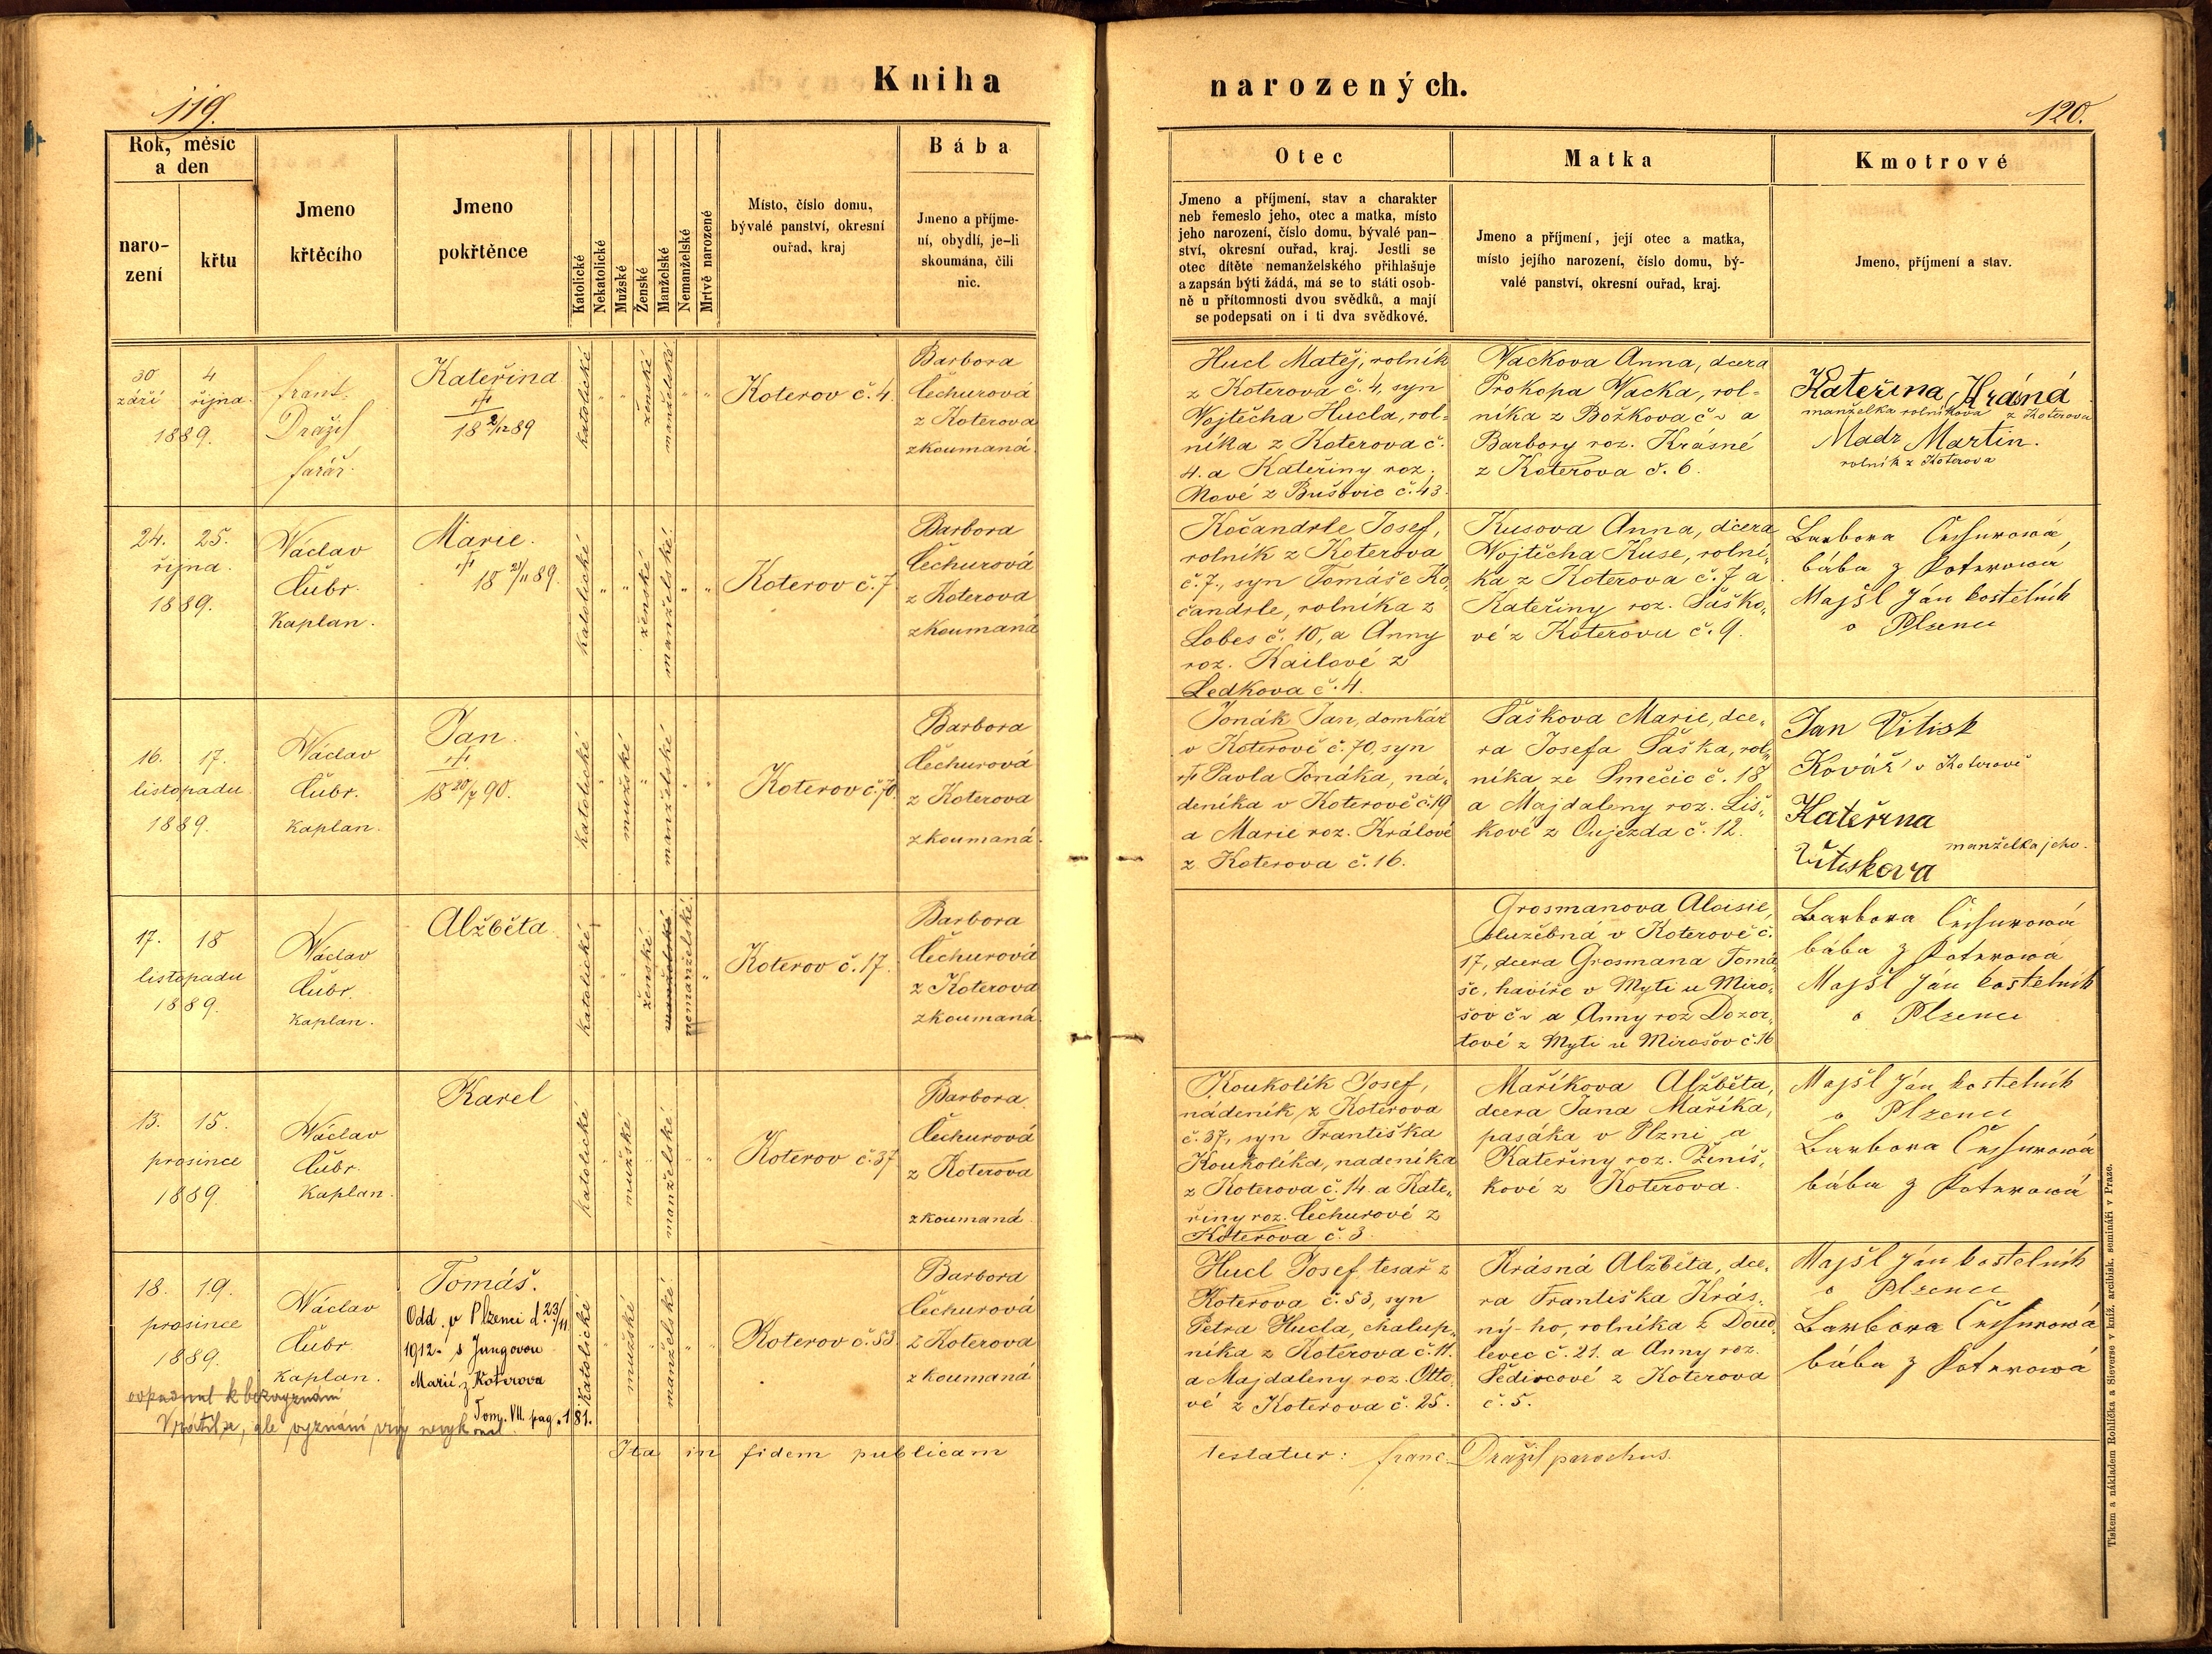 Kniha
narozených.
119.
120.
Rok, měsíc
a den
naro-
zení
křtu
Jmeno
křtěcího
Jmeno
pokřtěnce
Katolické
Nekatolické
Mužské
Ženské
Manželské
Nemanželské
Mrtvě narozené
Místo, číslo domu,
bývalé panství, okresní
ouřad, kraj
Bába
Jmeno a příjme-
ní, obydlí, je-li
skoumána, čili
nic.
Otec
Jmeno a příjmení, stav a charakter
neb řemeslo jeho, otec a matka, místo
jeho narození, číslo domu, bývalé pan-
ství, okresní ouřad, kraj. Jestli se
otec dítěte nemanželského přihlašuje
a zapsán býti žádá, má se to státi osob-
ně u přítomnosti dvou svědků, a mají
se podepsati on i ti dva svědkové.
Matka
Jmeno a příjmení, její otec a matka,
místo jejího narození, číslo domu, bý-
valé panství, okresní ouřad, kraj.
Kmotrové
Jmeno, příjmení a stav.
30 4
září října
1889.
frant.
Dražil
farář.
Kateřina
18 2/12 89
katolické
ženské
manželské
Koterov č. 4.
Barbora
Čechurová
z Koterova
zkoumaná.
Hucl Matěj, rolník
z Koterova č. 4, syn
Wojtěcha Hucla, rol-
níka z Koterova č.
4. a Kateřiny roz.
Nové z Bušovic č. 43.
Wackova Anna, dcera
Prokopa Wacka, rol-
níka z Božkova č a
Barbory roz. Krásné
z Koterova č. 6.
Kateřina
manželka rolníkova z Koterova
Madr Martin.
rolník z Koterova
24. 25.
října.
1889.
Václav
Čubr.
Kaplan.
Marie.
18 21/11 89.
katolické
ženské
manželské
Koterov č. 7
Barbora
Čechurová
z Koterova
zkoumaná
Kočandrle Josef,
rolník z Koterova
č. 7., syn Tomáše Ko-
čandrle, rolníka z
Lobes č. 10, a Anny
roz. Kailové z
Ledkova č. 4.
Kusova Anna, dcera
Wojtěcha Kuse, rolní-
ka z Koterova č. 7 a
Kateřiny roz. Šaško-
vé z Koterova č. 9.
Barbora Čechurowá,
bába z Koterowa
Majšl Ján kostelník
v Plzenci
16. 17.
listopadu
1889.
Václav
Čubr.
Kaplan.
Jan.
18 20/7 90.
katolické
mužské
manželské
Koterov č. 70.
Barbora
Čechurová
z Koterova
zkoumaná.
Jonák Jan, domkář
v Koterově č. 70, syn
Pavla Jonáka, ná-
deníka v Koterově č. 19
a Marie roz. Králové
z Koterova č. 16.
Šaškova Marie, dce-
ra Josefa Šaška, rol-
níka ze Smečic č. 18
a Majdaleny roz. Liš-
kové z Oujezda č. 12.
Jan Vitisk
Kovář v Koterově
Kateřina
manželka jeho.
Vitiskova
17. 18
listopadu
1889.
Václav
Čubr.
Kaplan.
Alžběta
katolické
ženské
manželské
nemanželské
Koterov č. 17.
Barbora
Čechurová
z Koterova
zkoumaná.
Grosmanova Aloisie,
služebná v Koterově č.
17, dcera Grosmana Tomá-
še, havíře v Myti u Miro-
šov č a Anny roz Dozor-
tové z Myti u Mirošov č. 16
Barbora Čechurowá
bába z Koterowa
Majšl Ján kostelník
v Plzenci
13. 15.
prosince
1889.
Václav
Čubr.
Kaplan.
Karel
katolické
mužské
manželské
Koterov č. 37
Barbora
Čechurová
z Koterova
zkoumaná.
Koukolík Josef,
nádeník z Koterova
č. 37, syn Františka
Koukolíka, nadeníka
z Koterova č. 14. a Kate-
řiny roz. Čechurové z
Koterova č. 3.
Maříkova Alžběta,
dcera Jana Maříka,
pasáka v Plzni a
Kateřiny roz. Ženíš-
kové z Koterova.
Majšl Ján kostelník
v Plzenci
Barbora Čechurowá
bába z Koterowá
18. 19.
prosince
1889.
Václav
Čubr
Kaplan.
Tomáš.
Odd. v Plzenci d. 23/11
1912. s Jungovou
Marií z Koterova
Tom. VII. pag. 181.
odpadnul k bezvyznání
Vrátil se, ale vyznání víry nevykonal.
katolické
mužské
manželské
Koterov č. 53.
Barbora
Čechurová
z Koterova
zkoumaná
Hucl Josef, tesař z
Koterova č. 53, syn
Petra Hucla, chalup-
níka z Koterova č. 11.
a Majdaleny roz. Otto-
vé z Koterova č. 25.
Krásná Alžběta, dce-
ra Františka Krás-
ný-ho, rolníka z Doud-
levec č. 21. a Anny roz.
Šedivcové z Koterova
č. 5.
Majšl Ján kostelník
v Plzenci
Barbora Čechurowá
bába z Koterowá
Ita in fidem publicam
testatur: franc. Dražil parochus.
Tiskem a nákladem Rohlíčka a Sieverse v kníž. arcibisk. semináři v Praze.